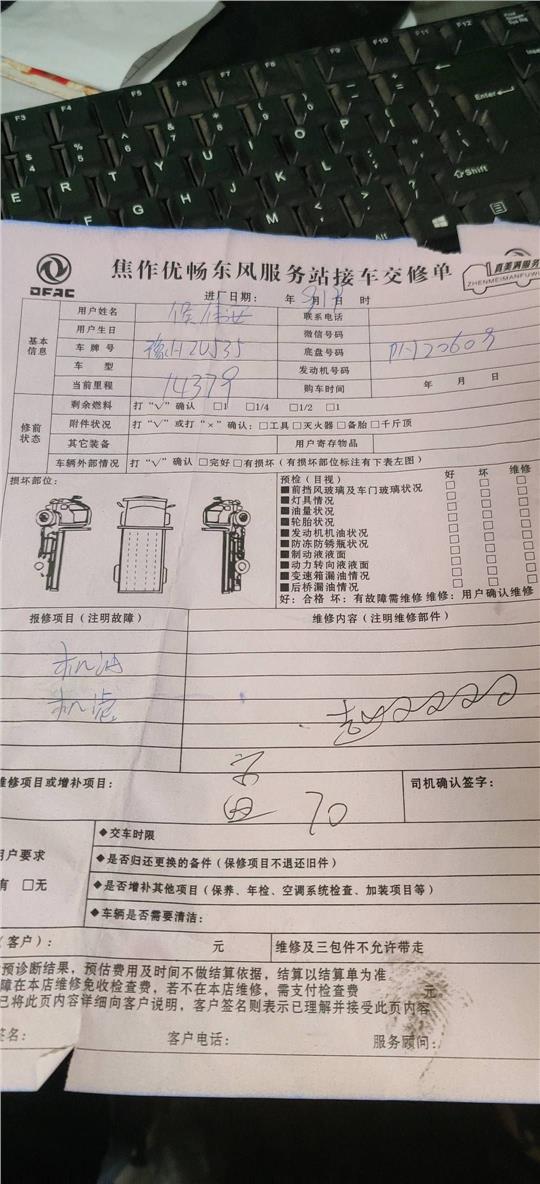 F3 F4 F5 F6 F7 F8 F9 F10 F11 F12
Enter
E R T Y U I O P
Shift
F G H J K L
M
Alt
DFAC
焦作优畅东风服务站接车交修单
真美满服务
ZHENMEIMANFUWU
进厂日期: 年 9月 日 时
基本信息
用户姓名 联系电话
用户生日 微信号码
车牌号 豫H20535 底盘号码
车型 发动机号码
当前里程 14379 购车时间 年 月 日
修前状态
剩余燃料 打“√”确认 □1 □1/4 □1/2 □1
附件状况 打“√”或打“×”确认: □工具 □灭火器 □备胎 □千斤顶
其它装备 用户寄存物品
车辆外部情况 打“√”确认 □完好 □有损坏 (有损坏部位标注有下表左图)
损坏部位:
预检 (目视) 好 坏 维修
■前挡风玻璃及车门玻璃状况 □ □ □
■灯具情况 □ □ □
■油量状况 □ □ □
■轮胎状况 □ □ □
■发动机机油状况 □ □ □
■防冻防锈瓶状况 □ □ □
■制动液液面 □ □ □
■动力转向液液面 □ □ □
■变速箱漏油情况 □ □ □
■后桥漏油情况 □ □ □
好: 合格 坏: 有故障需维修 维修: 用户确认维修
报修项目 (注明故障) 维修内容 (注明维修部件)
机油
机滤
维修项目或增补项目: 70 司机确认签字:
户要求
有 □无
◆交车时限
◆是否归还更换的备件 (保修项目不退还旧件)
◆是否增补其他项目 (保养、年检、空调系统检查、加装项目等)
◆车辆是否需要清洁:
(客户): 元 维修及三包件不允许带走
预诊断结果, 预估费用及时间不做结算依据, 结算以结算单为准
障在本店维修免收检查费, 若不在本店维修, 需支付检查费 元
已将此页内容详细向客户说明, 客户签名则表示已理解并接受此页内容
签名: 客户电话: 服务顾问: